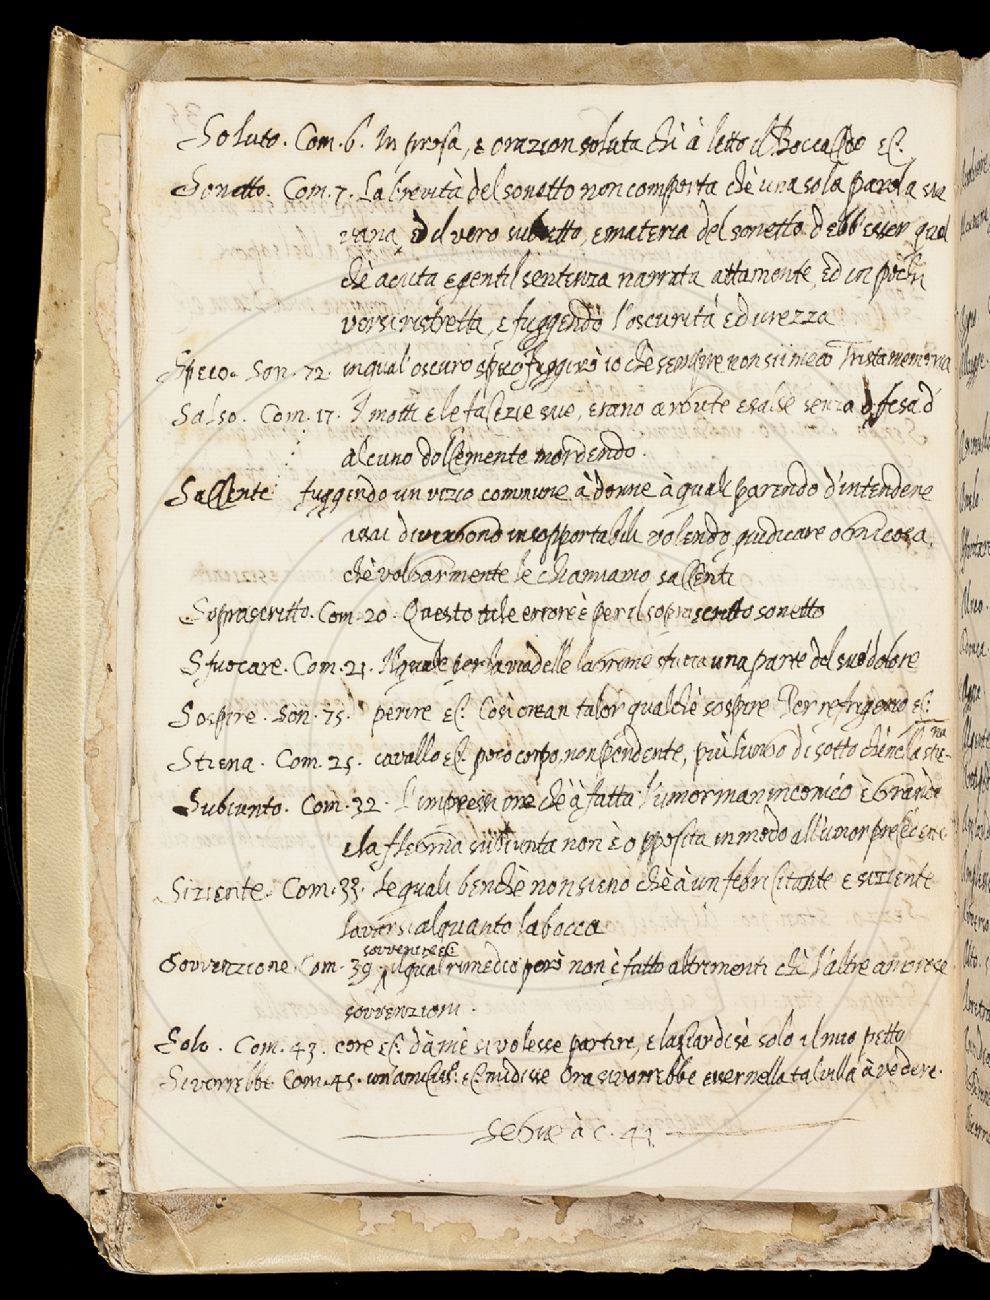 Soluto. Com. 6. In prosa, e orazion soluta chi à letto il Boccaccio &c.
Sonetto. Com. 7. La brevità del sonetto non comporta che una sola parola sia
vana, ed il vero subietto, e materia del sonetto debb'esser qual
che acuta e gentil sentenza narrata attamente, ed in pochi
versi ristretta, e fuggendo l'oscurità e durezza
Speco. Son. 72. in qual oscuro speco fuggirò io che sempre non sii meco Trista memoria
Salso. Com. 17. I motti e le facezie sue, erano argute e salse senza offesa d'
alcuno dolcemente mordendo.
Saccente fuggendo un vizio commune à donne à quali parendo d'intendere
assai divengono insopportabili volendo giudicare ogni cosa,
che volgarmente le chiamamo saccenti
Soprascritto. Com. 20. Questo tale errore è per il soprascritto sonetto
Sfuocare. Com. 21. Il quale per la via delle lagrime sfuoca una parte del suo dolore
Sospire. Son. 75. perire &c. Così crean talor qualche sospire Per refrigerio &c.
Stiena. Com. 25. cavallo &c. poco corpo, non pendente, più lungo di sotto che nella stie-
na
Subiunto. Com. 32. L'impressione che à fatta l'umor maninconico è grande
e la flegma subiunta non è opposita in modo all'umor precedente
Siziente. Com. 33. le quali benche non sieno che à un febricitante e siziente
lavarsi alquanto la bocca
sovvenire &c.
Sovvenzione. Com. 39. il qual rimedio però non è fatto altrimenti che l'altre amorose
sovvenzioni.
Solo. Com. 43. core &c. dà mè si volesse partire, e lasciar di sè solo il mio petto
Si vorrebbe Com. 45. un &c. mi disse Ora si vorrebbe esser nella tal villa à vedere.
Segue à c. 42